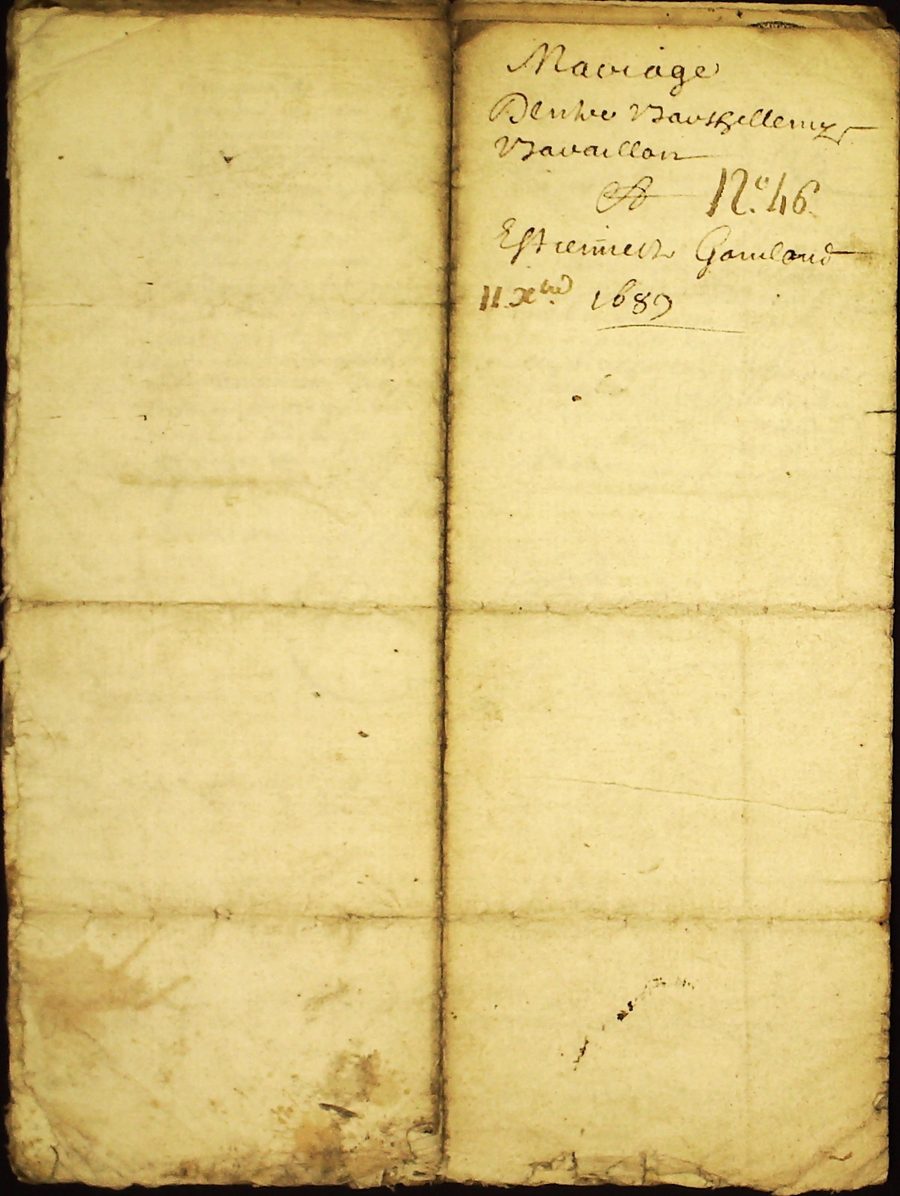 Mariage
D'entre Barthellemy
Bavaillon
Et N.º 46.
Estiennette
11. xbre 1689